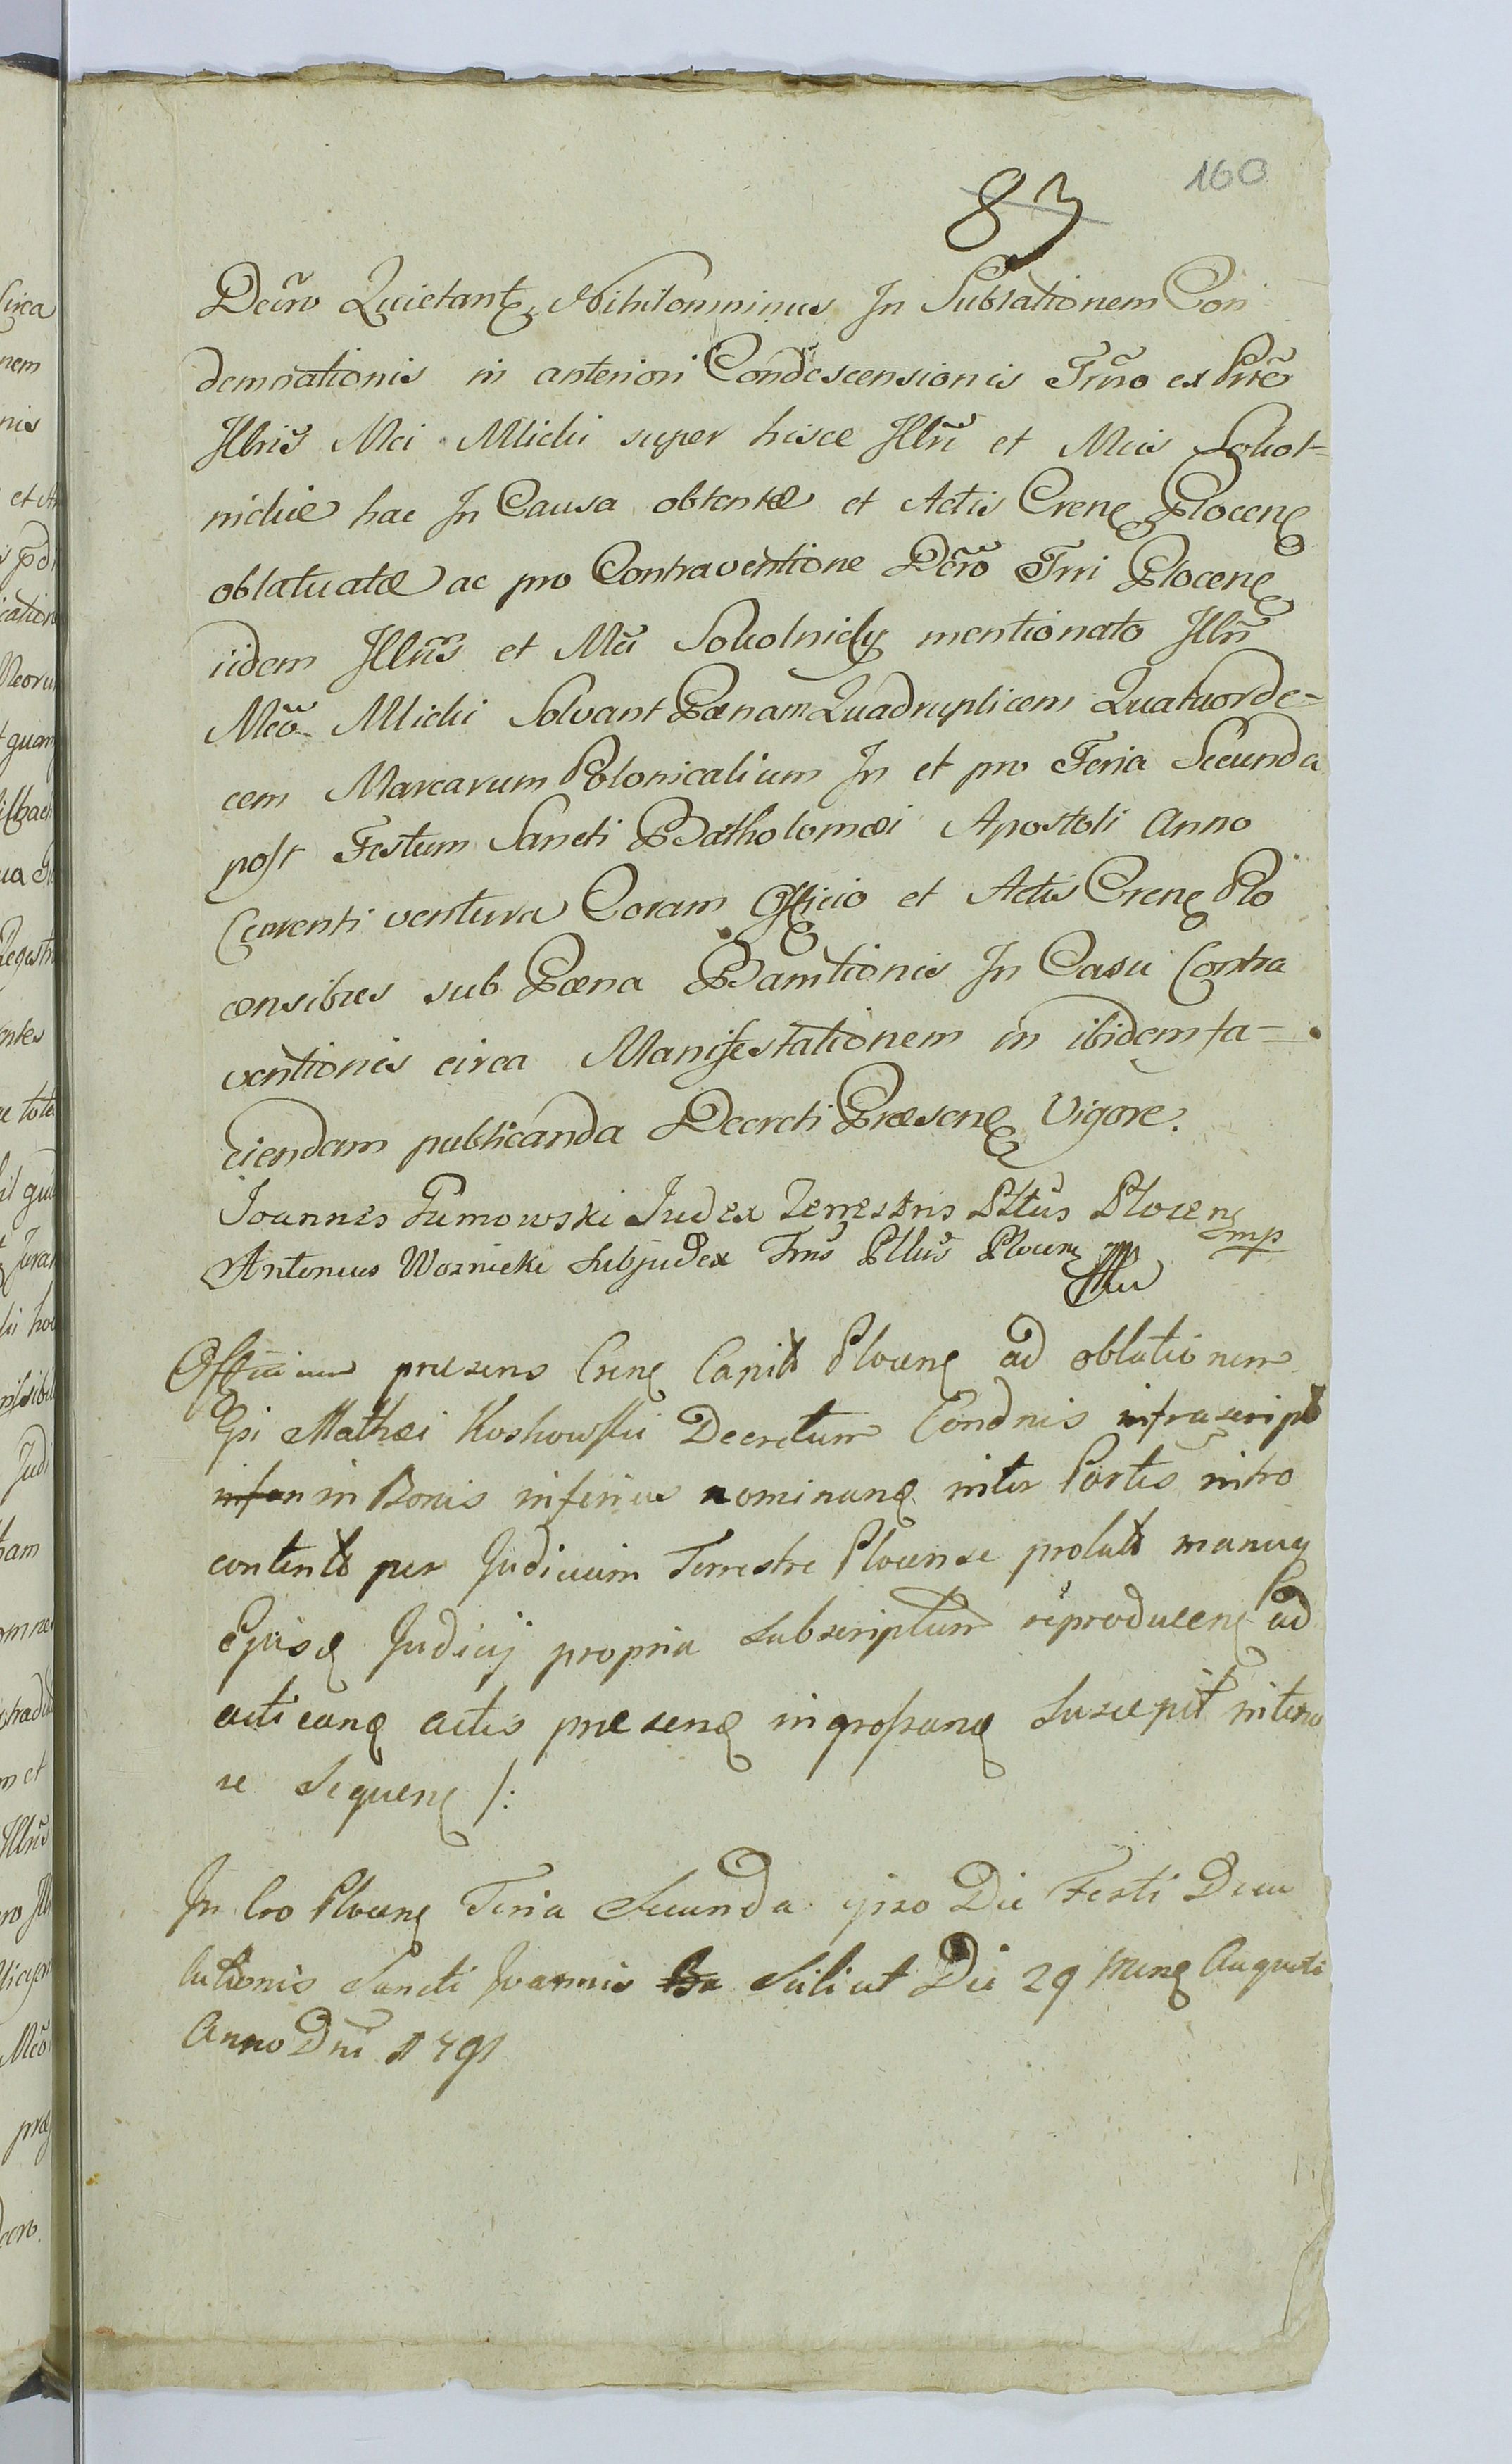 160
83
Decro Quietant, Nihilominus In Sublationem Con
demnationis in anteriori Condescensionis Trno ex Prte
Illris Mci Mlicki super hisce Illri et Mcis Sokol-
nickie hac In Causa obtentæ et Actis Crens Plocens
oblatuatæ ac pro Contraventione Dcro Trri Plocens
iidem Illris et Mci Sokolnicky mentionato Illri
Mco Mlicki Solvant Pænam Quadruplicem Quatuorde-
cem Marcarum Polonicalium In et pro Feria Secunda
post Festum Sancti Batholomæi Apostoli Anno
Currenti ventura Coram Officio et Actis Crens Plo
censibus sub Pæna Bannitionis In Casu Contra
ventionis circa Manifestationem in ibidem fa-
ciendam publicanda Decreti Præsens Vigore.
Joannes Tumowski Judex Terrestris Pltus Plocens mp
Antonius Woznicki Subjudex Trris Pltus Plocens mp
Officium præsens Crens Capit Plocens ad oblationem
Gsi Mathæi Koskowski Decretum Condnis infrascript
in Bonis inferius nominans inter Partes intro
content per Judicium Terrestre Plocense prolat manuq
Ejusd Judicij propria subscriptum reproducens ad
acticand actis præsens ingrossand suscepit tenoris
se sequens /:
In Cro Plocens Feria Secunda ipso Die Festi Decol
lationis Sancti Joannis Ba Scilicet Die 29 Mens Augusti
Anno Dni 1791